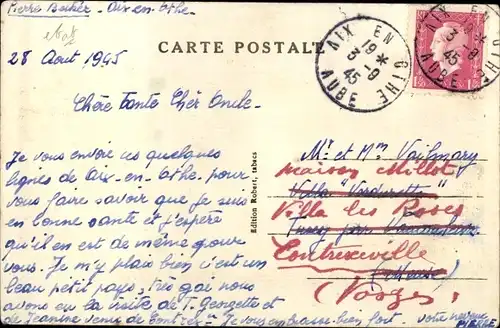 Pierre Becker. Aix-en-Othe.
28 Aout 1945
CARTE POSTALE
AIX EN OTHE
19 *
3 -9
45
AUBE
AIX EN OTHE
3 -9
45
AUBE
Chère Tante Cher Oncle.
Je vous envoie ces quelques
lignes de Aix-en-Othe pour
vous faire savoir que je suis
en bonne santé et j'espère
qu'il en est de même pour
vous. Je m'y plais bien c'est un
beau petit pays, très gai nous
avons eu la visite de T. Georgette et
de Jeannine venues de Je vous embrasse bien fort votre neveu
PIERRE
Edition Robert, tabacs
Mr et Mme Vailmary
maison Millot
Villa
Villa les Roses
Contrexeville
(Vosges)